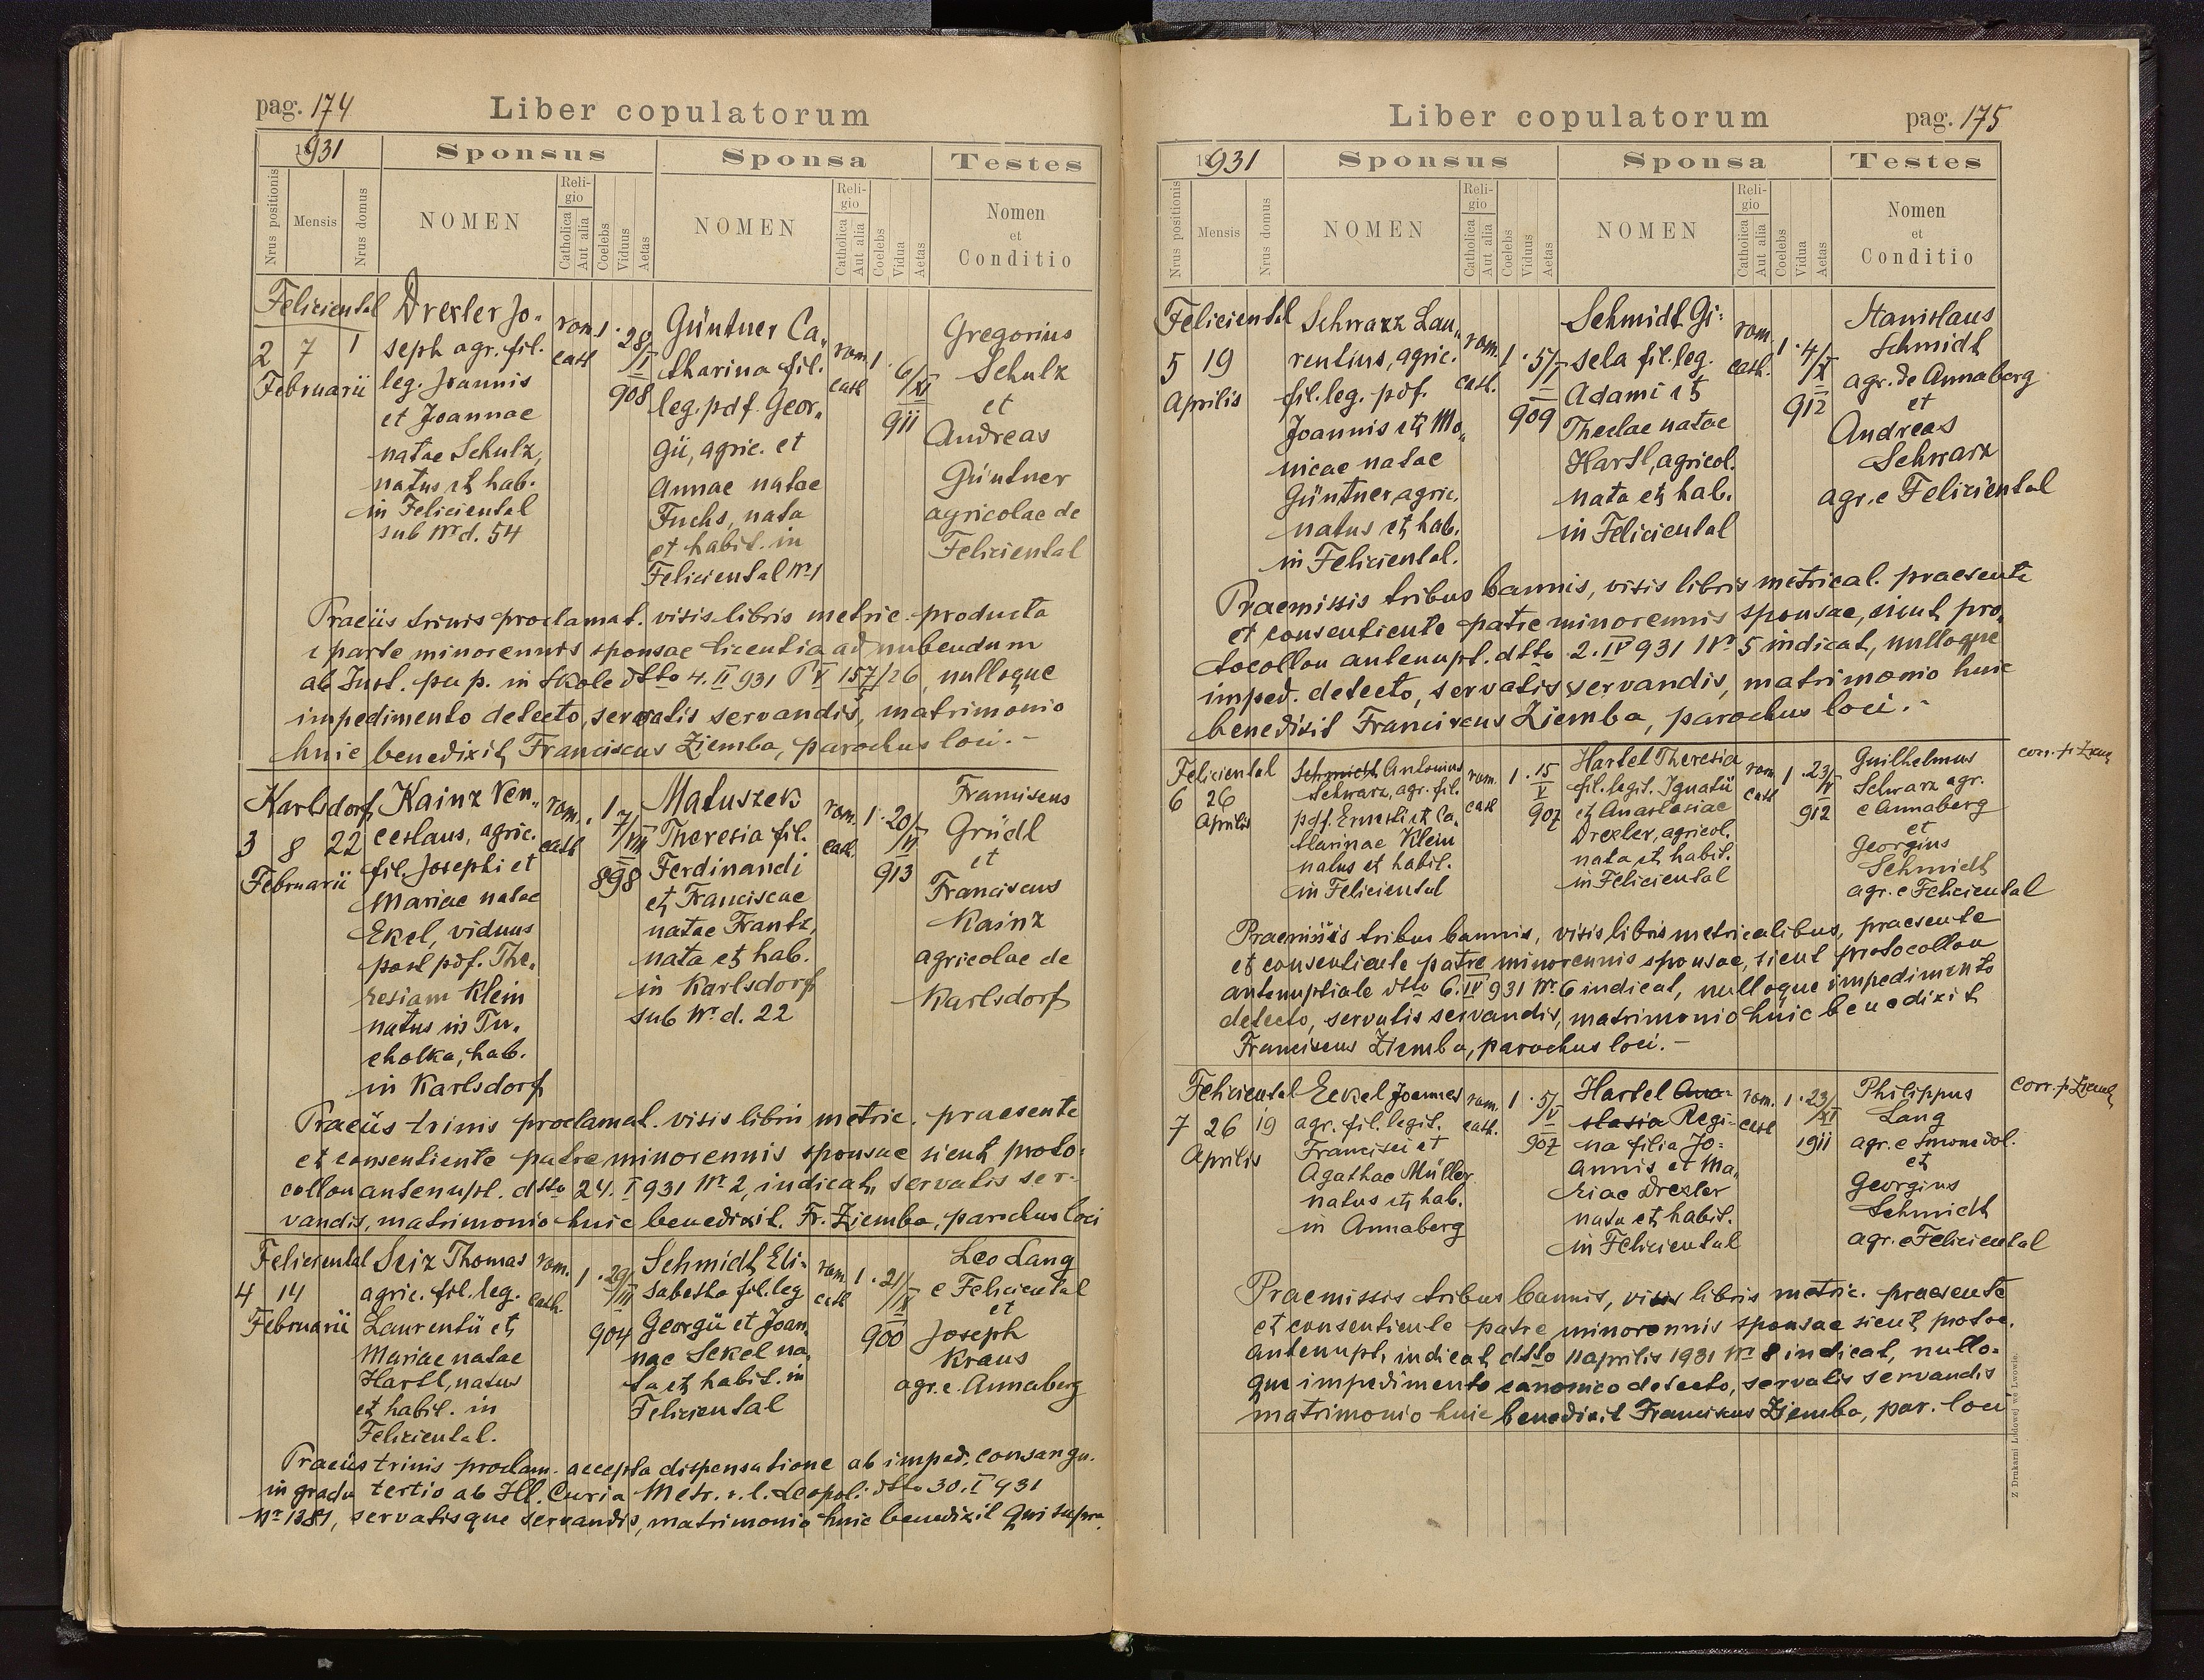 pag. 174
Liber copulatorum
1931
Sponsus
Sponsa
Testes
Nrus positionis
Mensis
Nrus domus
NOMEN
Religio
Catholica
Aut alia
Coelebs
Viduus
Aetas
NOMEN
Religio
Catholica
Aut alia
Coelebs
Vidua
Aetas
Nomen
et
Conditio
Feliciental
2 7 1
Februarii
Drexler Jo-
seph agr. fil.
leg. Joannis
et Joannae
natae Schulz,
natus et hab.
in Feliciental
sub Nr d. 54
rom. 1 . 28/
cath II
908
Güntner Ca,
tharina fil.
leg. pdf. Geor,,
gii, agric. et
Annae natae
Fuchs, nata
et habit. in
Feliciental Nr 1
rom 1 . 6/
cath XI
911
Gregorius
Schulz
et
Andreas
Güntner
agricolae de
Feliciental
Praeiis trinis proclamat. visis libris metric. producta
e parte minorennis sponsae licentia ad nubendum
ab Inst. pup. in Skole dtto 4. II 931 P V 157/26, nulloque
impedimento detecto, servatis servandis, matrimonio
huic benedixit Franciscus Ziemba, parochus loci. -
Karlsdorf
3 8 22
Februarii
Kainz Ven,,
ceslaus, agric.
fil. Josephi et
Mariae natae
Ekel, viduus
post pdf. The,
resiam Klein
natus in Tu,
cholka, hab.
in Karlsdorf
rom. 1 7/
cath VIII
898
Matuszek
Theresia fil.
Ferdinandi
et Franciscae
natae Frantz,
nata et hab.
in Karlsdorf
sub Nr d. 22
rom. 1 . 20/
cath. VI
913
Franciscus
Grüdl
et
Franciscus
Kainz
agricolae de
Karlsdorf
Praeiis trinis proclamat. visis libris metric. praesente
et consentiente patre minorennis sponsae sicut proto-
collon antenupt. dtto 24. I 931 Nr 2, indicat, servatis ser-
vandis, matrimonio huic benedixit. Fr. Ziemba, parochus loci
Feliciental
4 14
Februarii
Seiz Thomas
agric. fil. leg.
Laurentii et
Mariae natae
Hartl, natus
et habit. in
Feliciental.
rom. 1 . 29/
cath. VIII
904
Schmidt Eli-
sabetha fil. leg
Georgii et Joan,
nae Sekel na,
ta et habit. in
Feliciental
rom. 1 . 21/
cath IX
900
Leo Lang
e Feliciental
et
Joseph
Kraus
agr. e. Annaberg
Praeiis trinis proclam. accepta dispensatione ab imped. consangu.
in gradu tertio ab Ill. Curia Metr. r. l. Leopoli dtto 30. I 931
Nr 1381, servatisque servandis, matrimonio huic benedixit qui supra.
Liber copulatorum
pag. 175
1931
Sponsus
Sponsa
Testes
Nrus positionis
Mensis
Nrus domus
NOMEN
Religio
Catholica
Aut alia
Coelebs
Viduus
Aetas
NOMEN
Religio
Catholica
Aut alia
Coelebs
Vidua
Aetas
Nomen
et
Conditio
Feliciental
5 19
Aprilis
Schwarz Lau,,
rentius, agric.
fil. leg. pdf.
Joannis et Mo,
nicae natae
Güntner, agric.
natus et hab.
in Feliciental.
rom. 1 . 5/
cath. I
909
Schmidt Gi-
sela fil. leg.
Adami et
Theclae natae
Hartl, agricol.
nata et hab.
in Feliciental
rom. 1 . 4/
cath. X
912
Stanislaus
Schmidt
agr. de Annaberg
et
Andreas
Schwarz
agr. e Feliciental
Praemissis tribus bannis, visis libris metrical. praesente
et consentiente patre minorennis sponsae, sicut pro,
tocollon antenupt. dtto 2. IV 931 Nr 5 indicat, nulloque
imped. detecto, servatis servandis, matrimonio huic
benedixit Franciscus Ziemba, parochus loci. -
Feliciental
6 26
Aprilis
Schmidt Antonius
Schwarz, agr. fil.
pdf. Ernesti et Ca,
tharinae Klein
natus et habit.
in Feliciental
rom. 1 . 15
cath V
907
Hartel Theresia
fil. legit. Ignatii
et Anastasiae
Drexler, agricol.
nata et habit.
in Feliciental
rom. 1 . 23/
cath IV
912
Guilhelmus
Schwarz agr.
e Annaberg
et
Georgius
Schmidt
agr. e Feliciental
Praemissis tribus bannis, visis libris metricalibus, praesente
et consentiente patre minorennis sponsae, sicut protocollon
antenuptiale dtto 6. IV 931 Nr 6 indicat, nulloque impedimento
detecto, servatis servandis, matrimonio huic benedixit
Franciscus Ziemba, parochus loci. -
Feliciental
7 26 19
Aprilis
Eckel Joannes
agr. fil. legit.
Francisci et
Agathae Müller
natus et hab.
in Annaberg
rom. 1 . 5/
cath. V
907
Hartel Ana-
stasia Regi-
na filia Jo-
annis et Ma,
riae Drexler
nata et habit.
in Feliciental
rom. 1 . 23/
cath XI
1911
Philippus
Lang
agr. e Smorzedol.
et
Georgius
Schmidt
agr. e Feliciental
Praemissis tribus bannis, visis libris metric. praesente
et consentiente patre minorennis sponsae sicut protoc.
antenupt. indicat dtto 11 aprilis 1931 Nr 8 indicat, nullo-
que impedimento canonico detecto, servatis servandis
matrimonio huic benedixit Franciscus Ziemba, par. loci
Z Drukarni Ludowej we Lwowie.